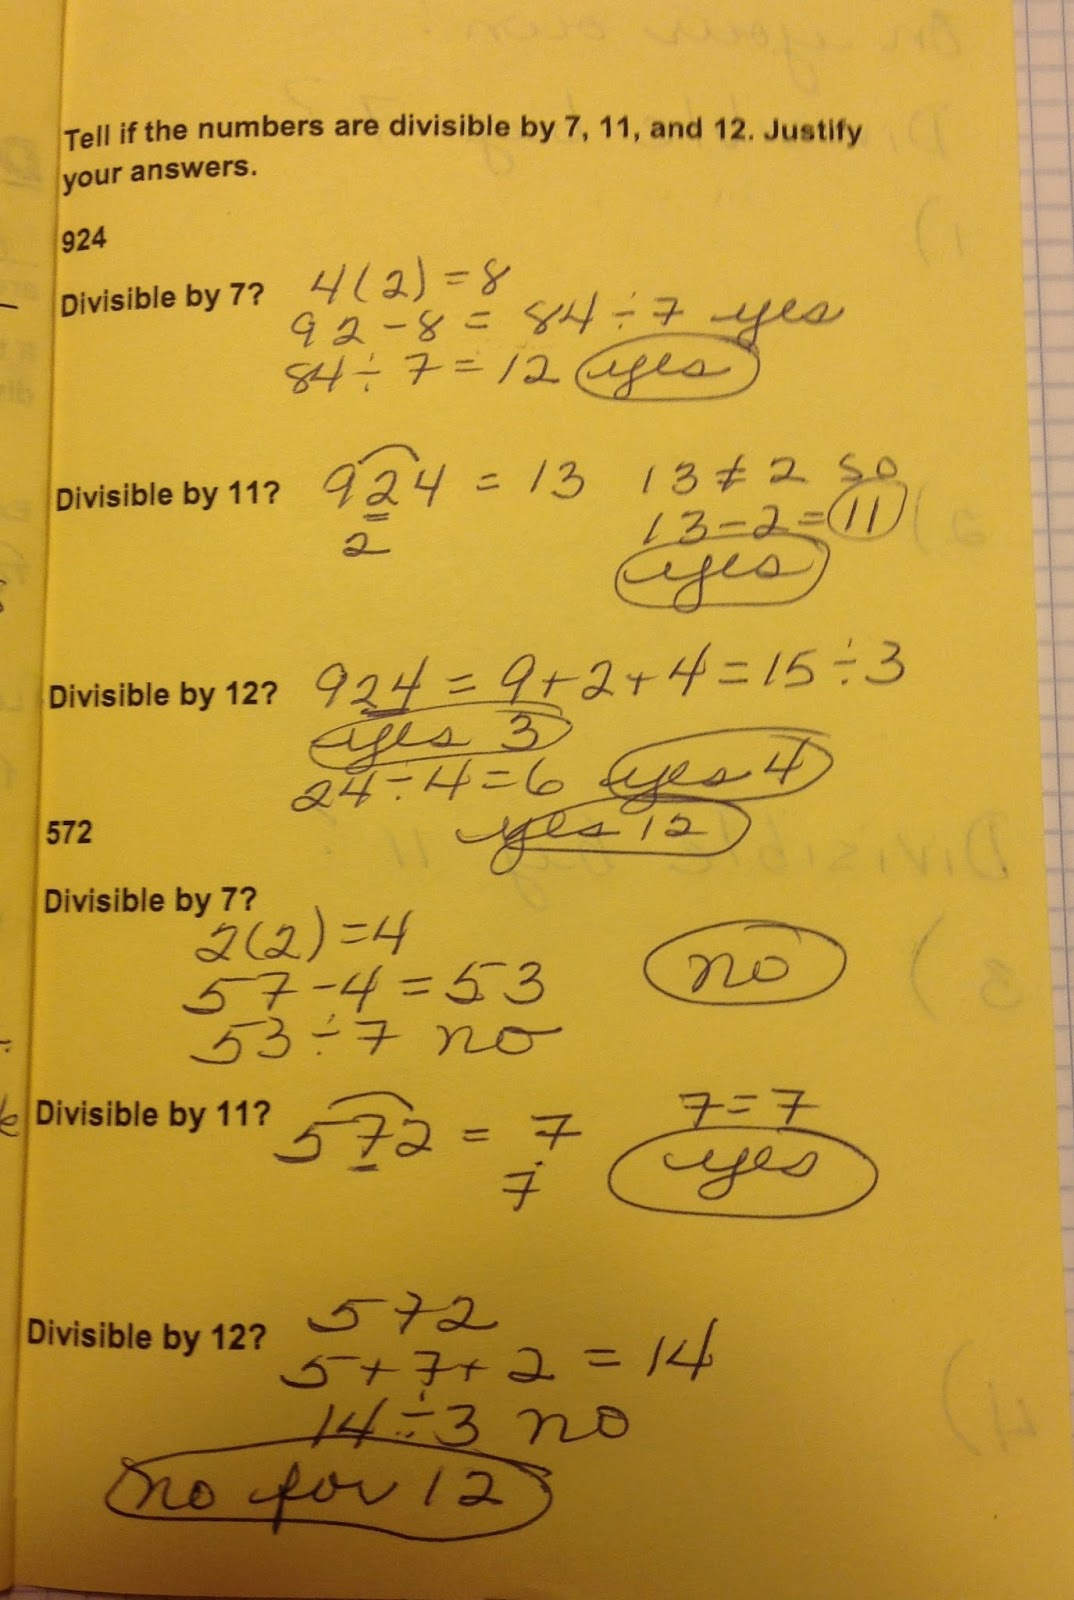 Tell if the numbers are divisible by 7, 11, and 12. Justify
your answers.
924
Divisible by 7? 4(2) = 8
92 - 8 = 84 ÷ 7 yes
84 ÷ 7 = 12 yes
Divisible by 11? 924 = 13 13 ≠ 2 so
2 13 - 2 = 11
yes
Divisible by 12? 924 = 9 + 2 + 4 = 15 ÷ 3
yes 3
24 ÷ 4 = 6 yes 4
yes 12
572
Divisible by 7?
2(2) = 4
57 - 4 = 53 no
53 ÷ 7 no
Divisible by 11? 572 = 7 7 = 7
7 yes
Divisible by 12? 572
5 + 7 + 2 = 14
14 ÷ 3 no
no for 12